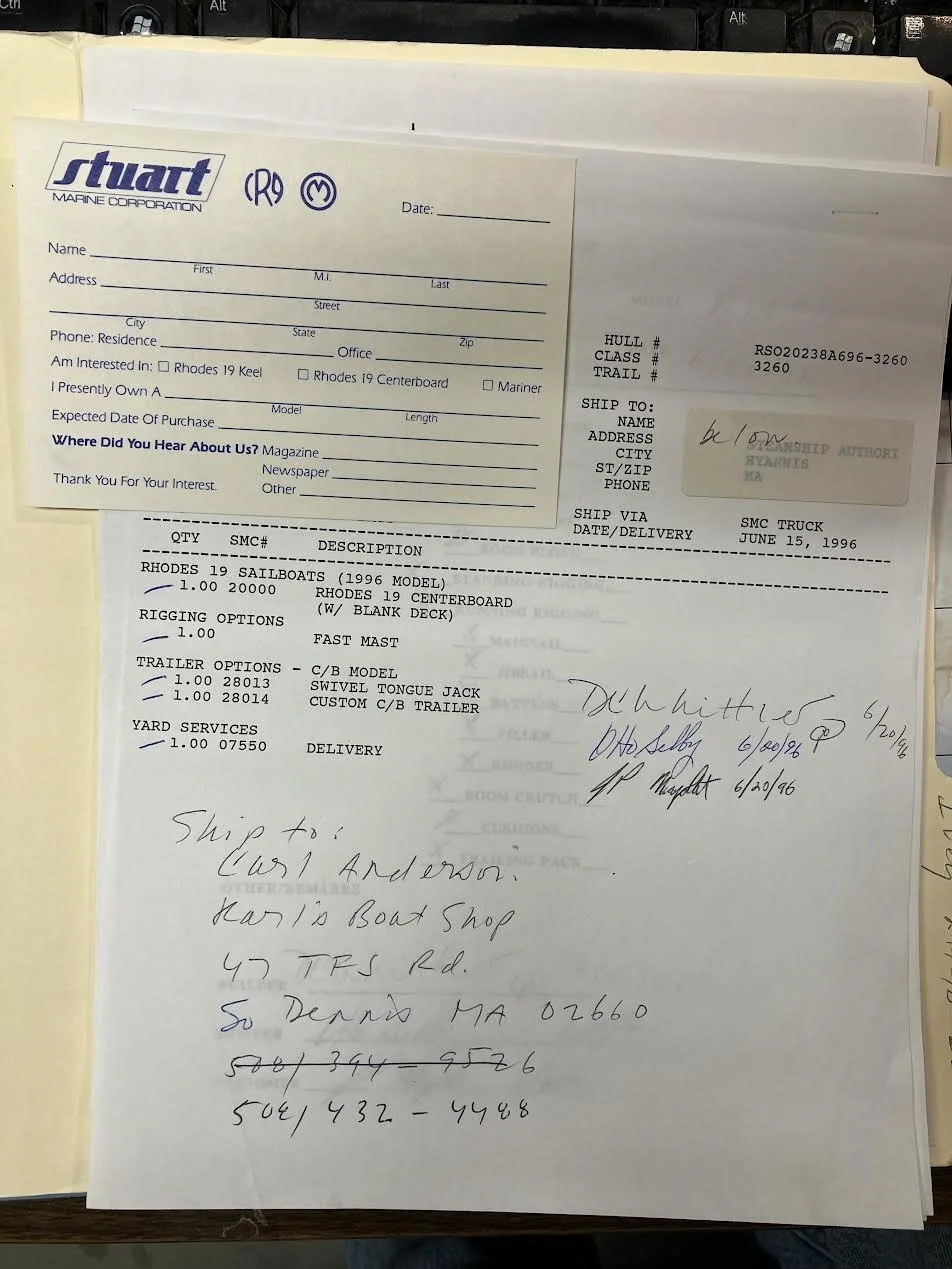 Ctrl
Alt
Alt
stuart
MARINE CORPORATION
R19 M
Date:
Name
First M.I. Last
Address
Street
City State Zip
Phone: Residence Office
Am Interested In: Rhodes 19 Keel Rhodes 19 Centerboard Mariner
I Presently Own A
Model Length
Expected Date Of Purchase
Where Did You Hear About Us? Magazine
Newspaper
Thank You For Your Interest. Other
HULL # RSO20238A696-3260
CLASS # 3260
TRAIL #
SHIP TO:
NAME below
ADDRESS STEAMSHIP AUTHORI
CITY HYANNIS
ST/ZIP MA
PHONE
SHIP VIA SMC TRUCK
DATE/DELIVERY JUNE 15, 1996
QTY SMC# DESCRIPTION
RHODES 19 SAILBOATS (1996 MODEL)
1.00 20000 RHODES 19 CENTERBOARD
(W/ BLANK DECK)
RIGGING OPTIONS
1.00 FAST MAST
TRAILER OPTIONS - C/B MODEL
1.00 28013 SWIVEL TONGUE JACK
1.00 28014 CUSTOM C/B TRAILER
YARD SERVICES
1.00 07550 DELIVERY
6/20/96
6/20/96
6/20/96
Ship to:
Carl Anderson
Karl's Boat Shop
47 TFS Rd.
So Dennis MA 02660
508/ 394-9526
508/ 432-4488
MAINSAIL
TILLER
RUDDER
BOOM CRUTCH
CUSHIONS
TRAILING PACK
OTHER/REMARKS
BUILDER